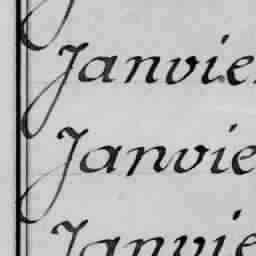 Janvie
Janvie
Janvie